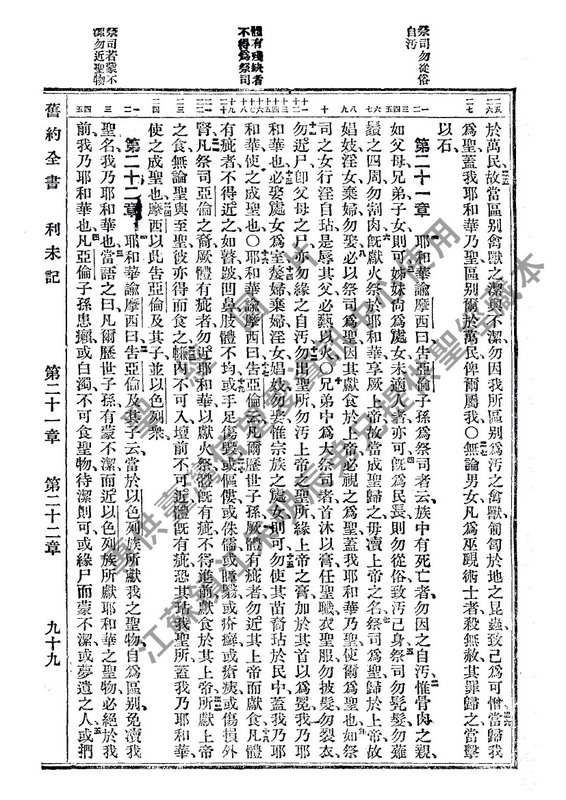 祭司勿從俗
自污
體有殘缺者
不得爲祭司
祭司若蒙不
潔勿近聖物
於萬民故當區別禽獸之潔與不潔勿因我所區別爲污之禽獸匍匐於地之昆蟲致己爲可憎當歸我
爲聖蓋我耶和華乃聖區別爾於萬民俾爾屬我〇無論男女凡爲巫覡術士者殺無赦其罪歸之當擊
以石
第二十一章 耶和華諭摩西曰告亞倫子孫爲祭司者云族中有死亡者勿因之自污惟骨肉之親
如父母兄弟子女則可姊妹尚爲處女未適人者亦可旣爲民長則勿從俗致汚己身祭司勿髡髮勿薙
鬚之四周勿割肉旣獻火祭於耶和華享厥上帝故當成聖歸之毋瀆上帝之名祭司爲聖歸於上帝故
娼妓淫女棄婦勿娶必以祭司爲聖因其獻食於上帝必視之爲聖蓋我耶和華乃聖使爾爲聖也如祭
司之女行淫自玷是辱其父必爇以火〇兄弟中爲大祭司者首沐以膏任聖職衣聖服勿披髮勿裂衣
勿近尸卽父母之尸亦勿緣之自汚勿出聖所勿汚上帝之聖所緣上帝之膏加於其首以爲冕我乃耶
和華也必娶處女爲室嫠婦棄婦淫女娼妓勿娶惟宗族之處女則可勿使其苗裔玷於民中蓋我乃耶
和華使之成聖也〇耶和華諭摩西曰告亞倫云凡爾歷世子孫厥體有疵者勿近其上帝而獻食凡體
有疵者不得近之如瞽跛凹鼻肢體不均或手足傷毀或傴僂或侏儒或瞖或疥癬或瘡痍或傷損外
腎凡祭司亞倫之裔厥體有疵者勿近耶和華以獻火祭體旣有疵不得進前獻食於其上帝所獻上帝
之食無論聖與至聖彼亦得而食之㡘內不可入壇前不可近體旣有疵恐其玷我聖所蓋我乃耶和華
使之成聖也摩西以此告亞倫及其子並以色列衆
第二十二章 耶和華諭摩西曰告亞倫及其子云當於以色列族所獻我之聖物自爲區別免瀆我
聖名我乃耶和華也當語之曰凡爾歷世子孫有蒙不潔而近以色列族所獻耶和華之聖物必絕於我
前我乃耶和華也凡亞倫子孫患癩或白濁不可食聖物待潔則可或緣尸而蒙不潔或夢遺之人或捫
舊約全書 利未記 第二十一章 第二十二章 九十九
聖經圖片
皇供臺灣學術文獻資訊網使用